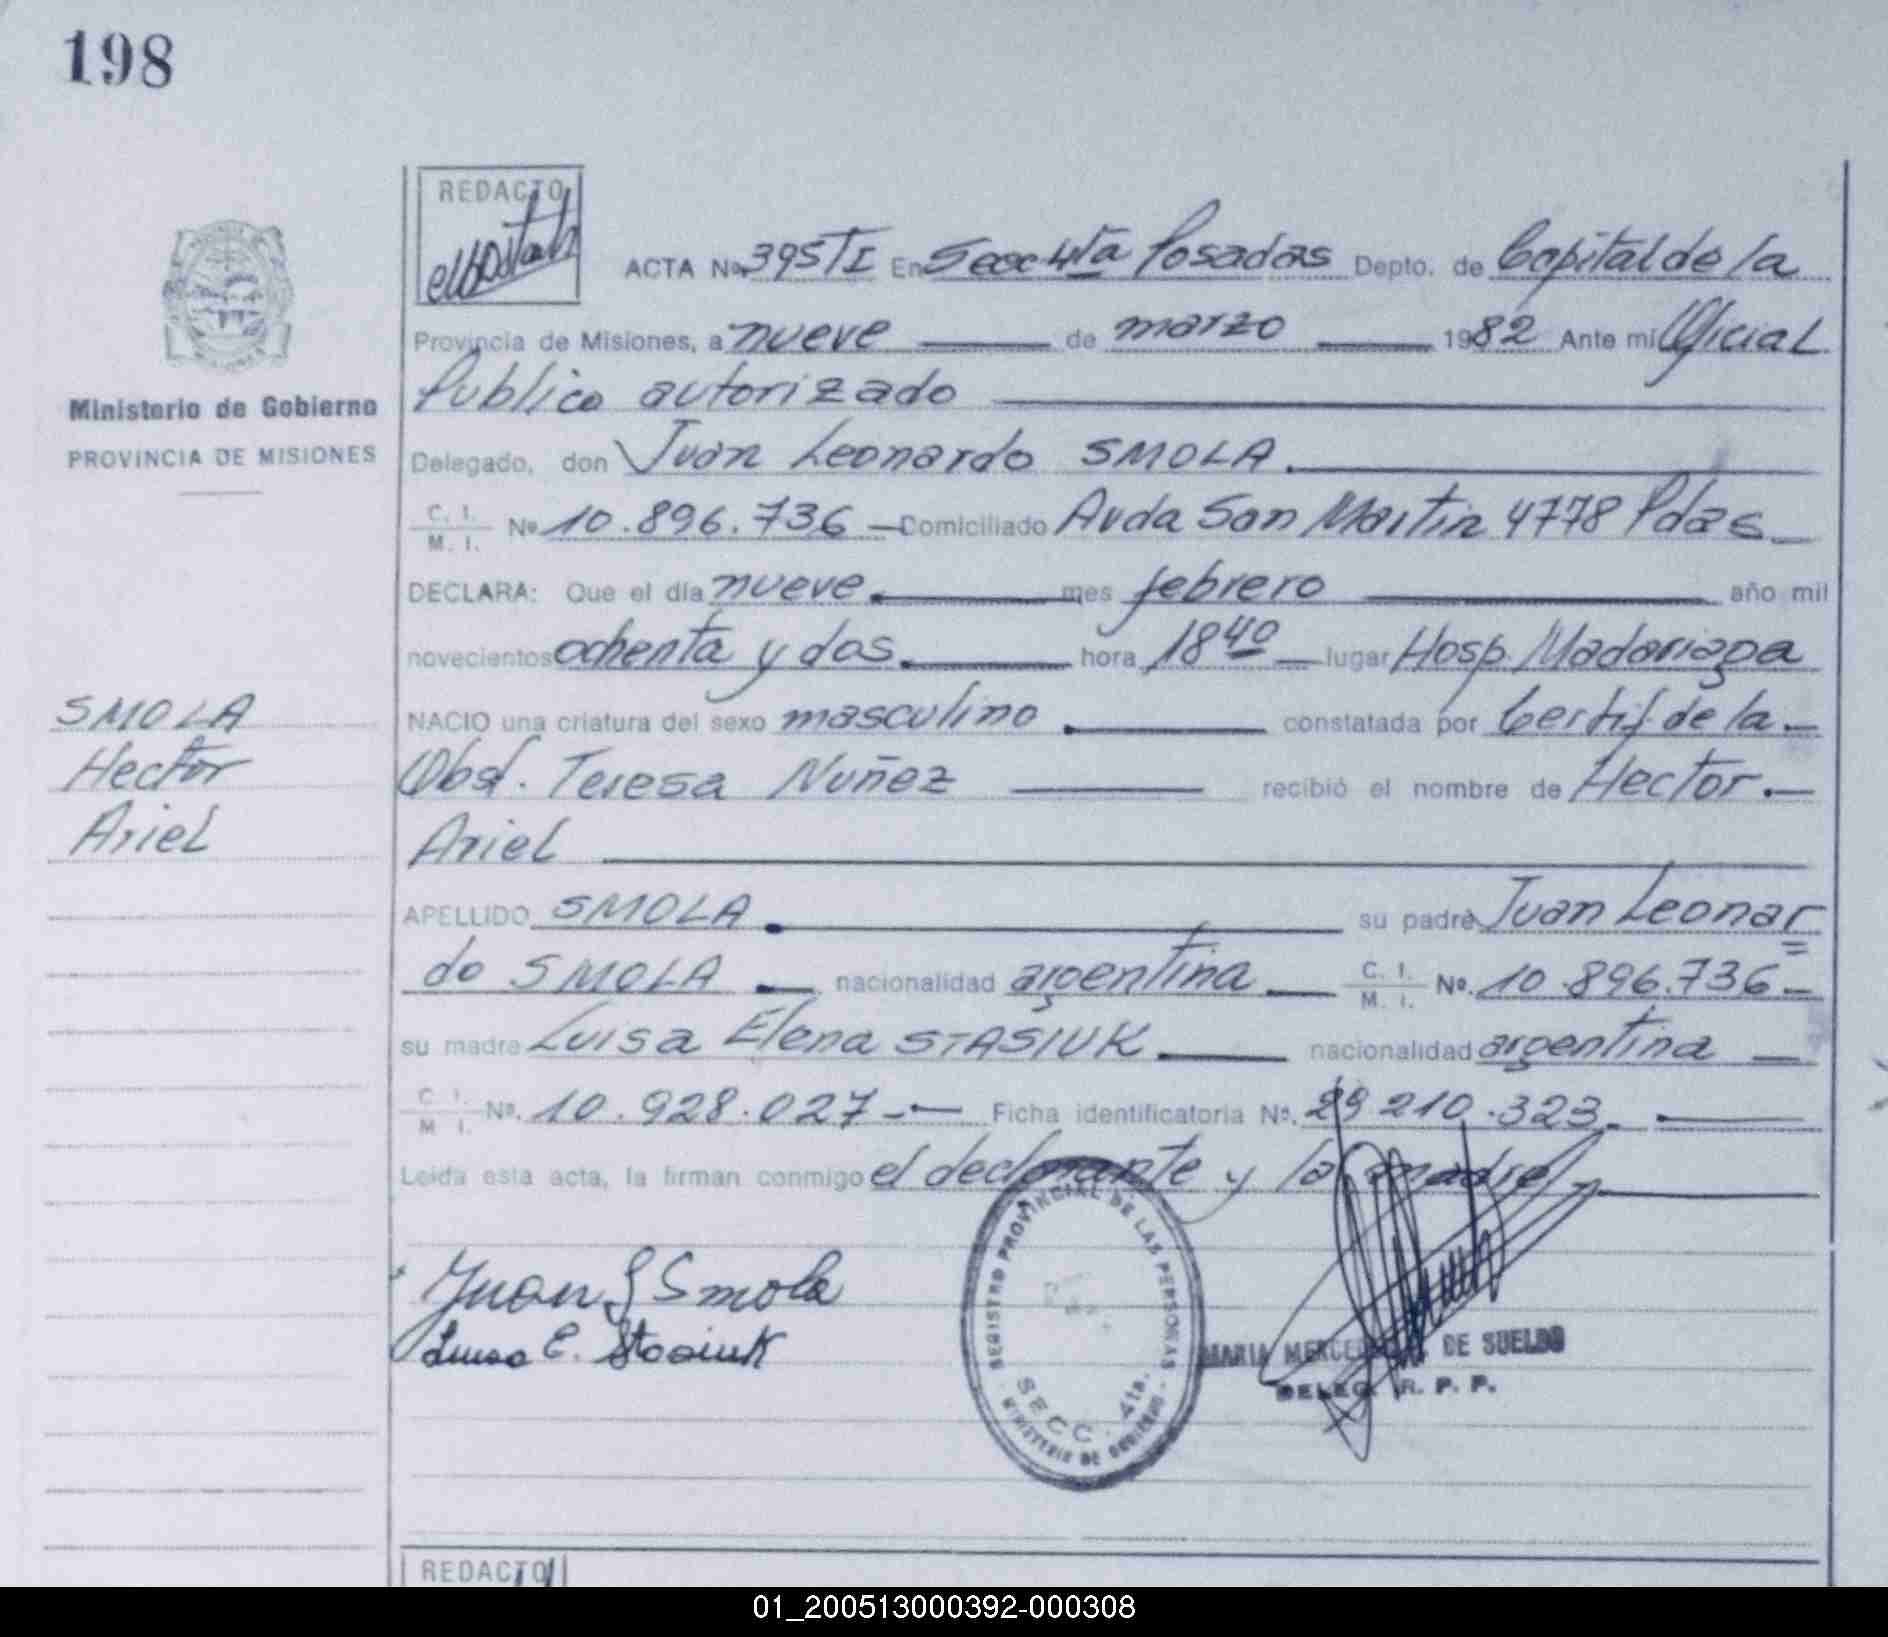 198
REDACTO
ACTA Nº 395 T I En Secc 4ta Posadas Depto. de Capital de la
Provincia de Misiones, a nueve de marzo 1982 Ante mi Oficial
Ministerio de Gobierno
Publico autorizado
PROVINCIA DE MISIONES
Delegado, don Juan Leonardo SMOLA.
C. I.
M. I. Nº 10.896.736 — Domiciliado Avda San Martin 4778 Pdas
DECLARA: Que el día nueve mes febrero año mil
novecientos ochenta y dos hora 18 40 lugar Hosp. Madariaga
SMOLA
NACIO una criatura del sexo masculino constatada por Certif. de la
Hector
Obst. Teresa Nuñez recibió el nombre de Hector
Ariel
Ariel
APELLIDO SMOLA su padre Juan Leonar
do SMOLA nacionalidad argentina C. I.
M. I. Nº. 10.896.736
su madre Luisa Elena STASIUK nacionalidad argentina
C. I.
M. I. Nº. 10.928.027 Ficha identificatoria Nº. 29.210.323
Leída esta acta, la firman conmigo el declarante y la madre
Juan L Smola
Luisa E. Stasiuk
REGISTRO PROVINCIAL DE LAS PERSONAS
SECC. 4ta.
MINISTERIO DE GOBIERNO
MARIA DE SUELDO
DELEG. R. P. P.
REDACTO
01_200513000392-000308